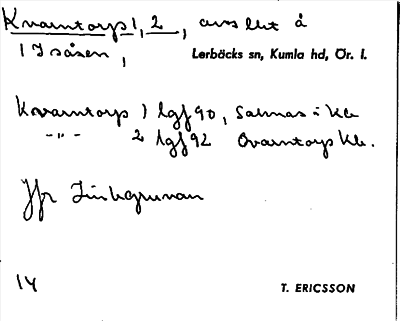 Kvarntorp 1, 2, avs. lht å
1 Isåsen,
Lerbäcks sn, Kumla hd, Ör. l.
Kvarntorp 1 lgf 90, Saknas i Kb
-"- 2 lgf 92 Kvarntorp Kb.
Jfr Zinkgruvan
14
T. ERICSSON